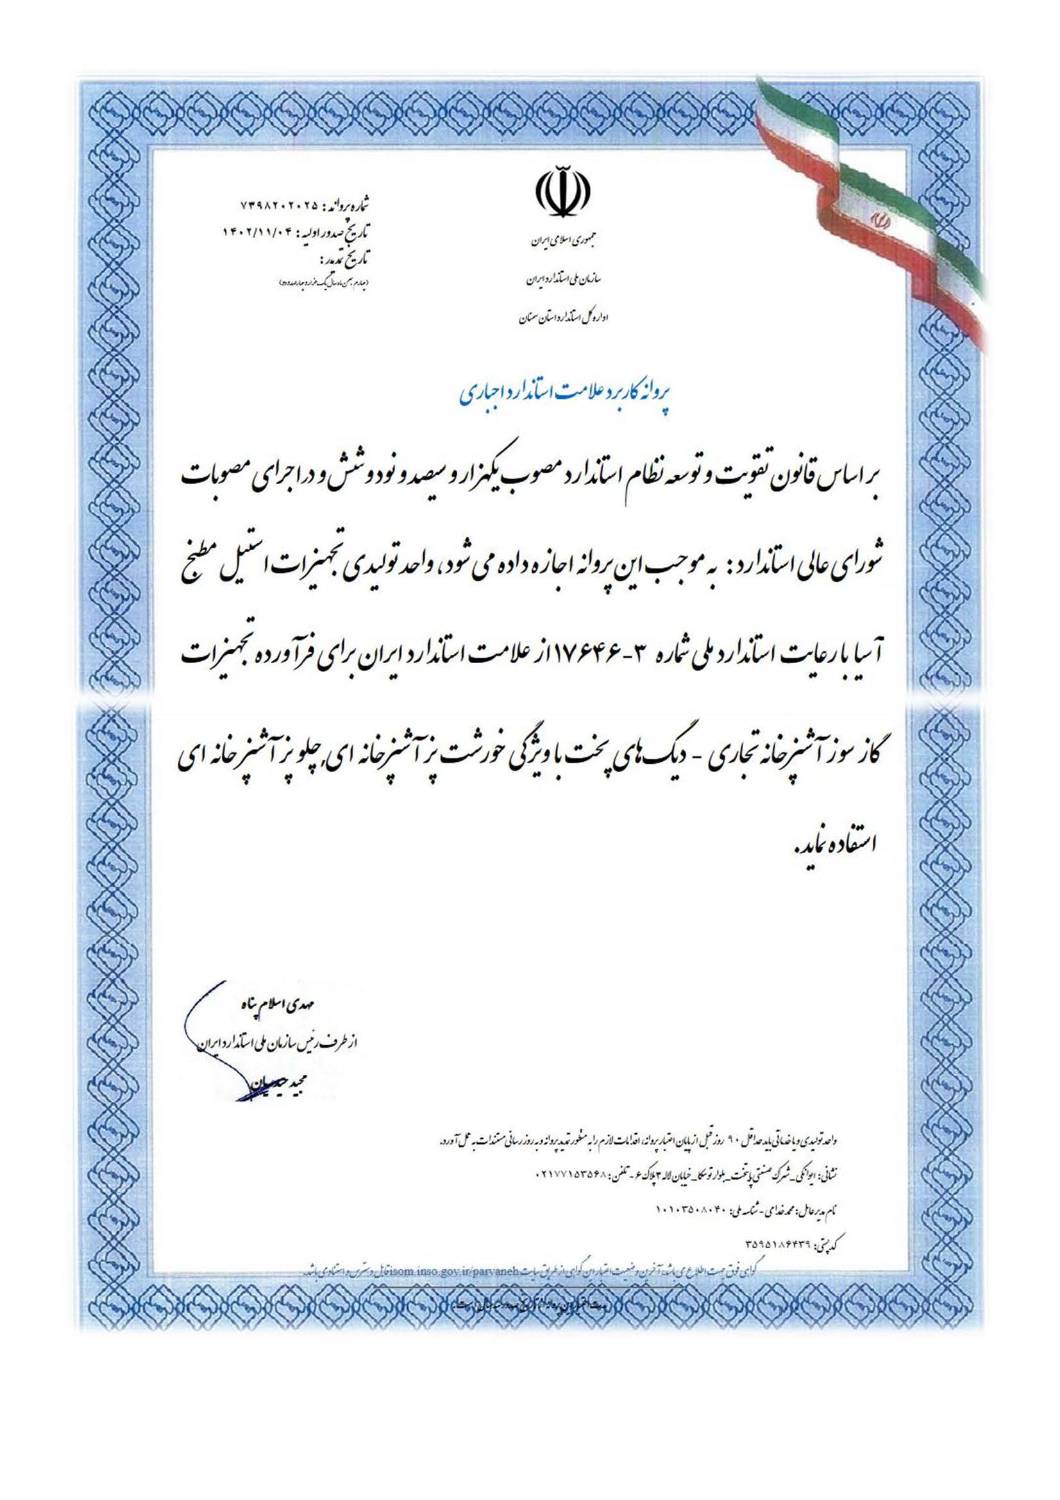 جمهوری اسلامی ایران
سازمان ملی استاندارد ایران
اداره کل استاندارد استان سمنان
شماره پروانه : ۷۳۹۸۲۰۲۰۲۵
تاریخ صدور اولیه : ۱۴۰۲/۱۱/۰۴
تاریخ تمدید :
(چهارم بهمن ماه سال یک هزار و چهارصد و دو)
پروانه کاربرد علامت استاندارد اجباری
بر اساس قانون تقویت و توسعه نظام استاندارد مصوب یکهزار و سیصد و نود و شش و در اجرای مصوبات
شورای عالی استاندارد : به موجب این پروانه اجازه داده می شود، واحد تولیدی تجهیزات استیل مطبخ
آسیا با رعایت استاندارد ملی شماره ۳-۱۷۶۴۶ از علامت استاندارد ایران برای فرآورده تجهیزات
گاز سوز آشپزخانه تجاری - دیگ های پخت با ویژگی خورشت پز آشپزخانه ای, چلو پز آشپزخانه ای
استفاده نماید.
مهدی اسلام پناه
از طرف رئیس سازمان ملی استاندارد ایران
مجید حیدریان
واحد تولیدی و یا خدماتی باید حداقل ۹۰ روز قبل از پایان اعتبار پروانه، اقدامات لازم را به منظور تمدید پروانه و به روز رسانی مستندات به عمل آورد.
نشانی : ایوانکی _ شهرک صنعتی پایتخت _ بلوار توسکا _ خیابان لاله ۳ پلاک ۶ - تلفن : ۰۲۱۷۷۱۵۳۵۶۸
نام مدیرعامل : محمد خدامی - شناسه ملی : ۱۰۱۰۳۵۰۸۰۴۰
کد پستی : ۳۵۹۵۱۸۶۴۳۹
گواهی فوق جهت اطلاع می باشد. آخرین وضعیت اعتبار این گواهی از طریق سایت isom.inso.gov.ir/parvaneh قابل دسترس و استناد می باشد.
مدت اعتبار این پروانه از تاریخ صدور سه سال است.